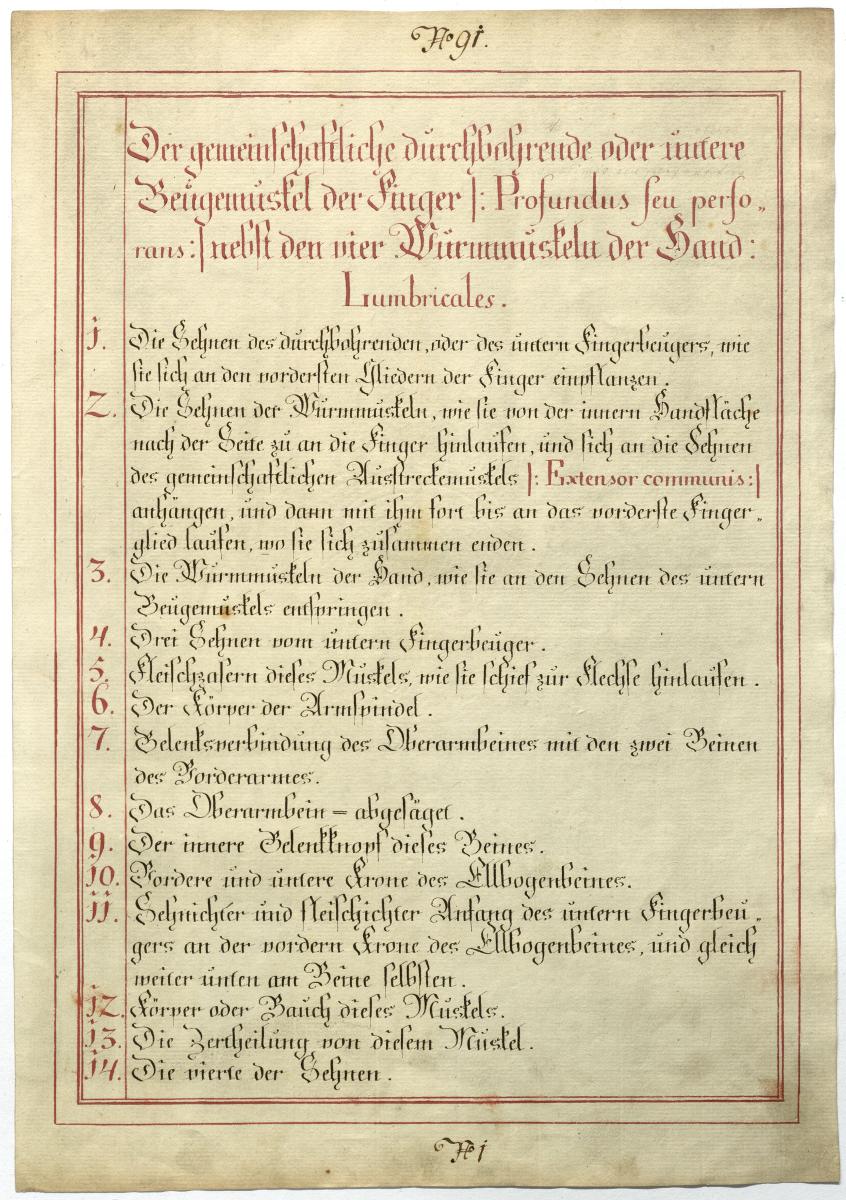 No 91.
Der gemeinschaftliche durchbohrende oder untere
Beugemuskel der Finger |: Profundus seu perfo„
rans :| nebst den vier Wurmmuskeln der Hand :
Lumbricales .
1. Die Sehnen des durchbohrenden, oder des untern Fingerbeugers, wie
sie sich an den vordersten Gliedern der Finger einpflanzen .
2. Die Sehnen der Wurmmuskeln, wie sie von der innern Handfläche
nach der Seite zu an die Finger hinlaufen, und sich an die Sehnen
des gemeinschaftlichen Ausstreckemuskels |: Extensor communis :|
anhängen, und dann mit ihm fort bis an das vorderste Finger„
glied laufen, wo sie sich zusammen enden .
3. Die Wurmmuskeln der Hand, wie sie an den Sehnen des untern
Beugemuskels entspringen .
4. Drei Sehnen vom untern Fingerbeuger .
5. Fleischzasern dieses Muskels, wie sie schief zur Flechse hinlaufen .
6. Der Körper der Armspindel .
7. Gelenksverbindung des Oberarmbeines mit den zwei Beinen
des Vorderarmes .
8. Das Oberarmbein = abgesäget .
9. Der innere Gelenkknopf dieses Beines .
10. Vordere und untere Krone des Ellbogenbeines .
11. Sehnichter und fleischichter Anfang des untern Fingerbeu„
gers an der vordern Krone des Ellbogenbeines, und gleich
weiter unten am Beine selbsten .
12. Körper oder Bauch dieses Muskels .
13. Die Zertheilung von diesem Muskel .
14. Die vierte der Sehnen .
No 1